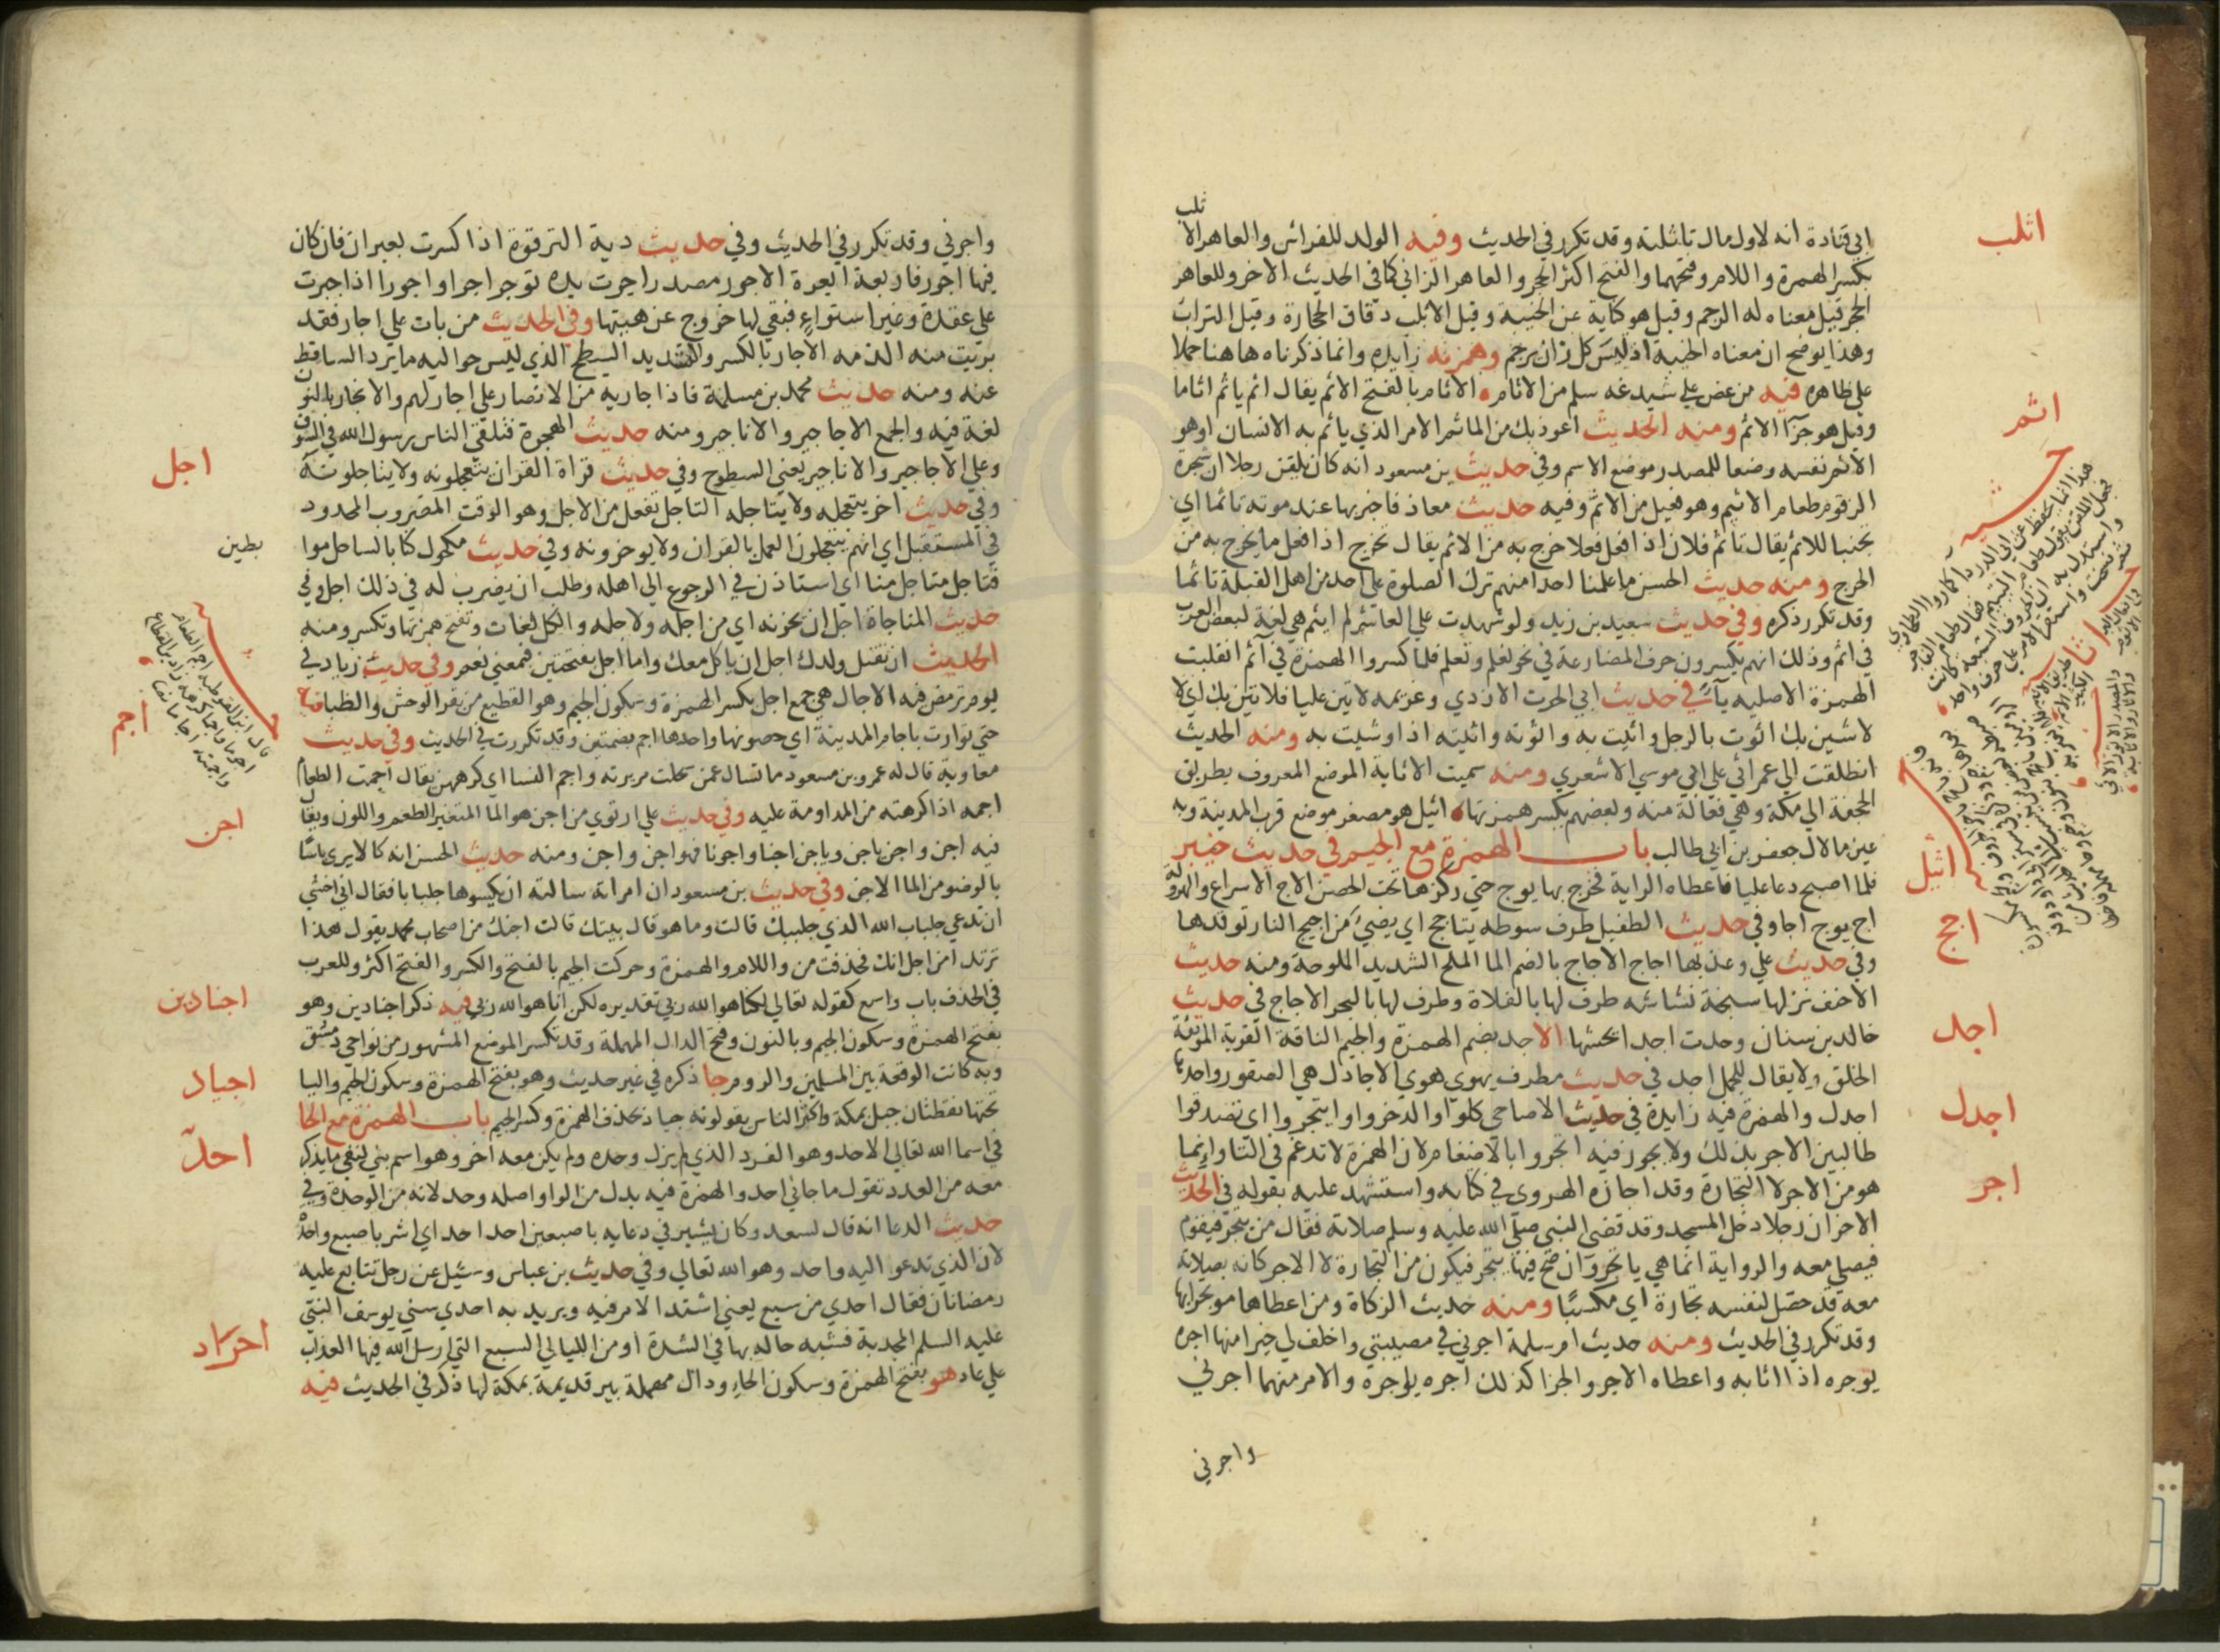 ثلب
ابي قتادة انه لاول مال تاثلته وقد تكرر في الحديث وفيه الولد للفراش والعاهر الا
بكسر الهمزة واللام وفتحهما والفتح اكثر الحجر والعاهر الزاني كما في الحديث الاخر وللعاهر
الحجر قيل معناه له الرجم وقيل هو كناية عن الخيبة وقيل الاثلب دقاق الحجارة وقيل التراب
وهذا يوضح ان معناه الخيبة اذ ليس كل زان يرجم وهمزته زايدة وانما ذكرناه هاهنا حملا
على ظاهره فيه من عض على شبدعه سلم من الاثام الاثام بالفتح الاثم يقال اثم ياثم اثاما
وقيل هو جزا الاثم ومنه الحديث اعوذ بك من الماثم الامر الذي ياثم به الانسان اوهو
الاثم نفسه وضعا للمصدر موضع الاسم وفي حديث بن مسعود انه كان يلقن رجلا ان شجرة
الزقوم طعام الاثيم وهو فعيل من الاثم وفيه حديث معاذ فاخبر بها عند موته تاثما اي
تجنبا للاثم يقال تاثم فلان اذا فعل فعلا خرج به من الاثم يقال تحرج اذا فعل ما يخرج به من
الحرج ومنه حديث الحسن ما علمنا احدا منهم ترك الصلوة على احد من اهل القبلة تاثما
وقد تكرر ذكره وفي حديث سعيد بن زيد ولو شهدت على العاشر لم ايثم هي لغة لبعض العرب
في اثم وذلك انهم يكسرون حرف المضارعة في نحو نعلم وتعلم فلما كسروا الهمزة في آثم انقلبت
الهمزة الاصليه يآ في حديث ابي الحرث الازدي وغريمه لاتين عليا فلاثين بك اي لا
لاشين بك اثوت بالرجل واثيت به واثوته واثيته اذا وشيت به ومنه الحديث
انطلقت الى عمر اثي على ابي موسي الاشعري ومنه سميت الاثاية الموضع المعروف بطريق
الجحفة الي مكة وهي فعالة منه وبعضهم بكسر همزتها اثيل هو مصغر موضع قرب المدينة وبه
عين مالال جعفر بن ابي طالب باب الهمزة مع الجيم في حديث خيبر
فلما اصبح دعا عليا فاعطاه الراية فخرج بها يوج حتي ركزها تحت الحصن الاج الاسراع والهرولة
اج يوج اجا وفي حديث الطفيل طرف سوطه يتاجج اي يضيئ من اجيج النار توقدها
وفي حديث علي وعذبها اجاج الاجاج بالضم الما الملح الشديد الملوحة ومنه حديث
الاحنف نزلنا سبخة نشاشه طرف لها بالفلاة وطرف لها بالبحر الاجاج في حديث
خالد بن سنان وجدت اجدا تحشها الاجد بضم الهمزة والجيم الناقة القوية الموثقة
الخلق ولا يقال للجمل اجد في حديث مطرف يهوي هوي الاجادل هي الصقور واحدها
اجدل والهمزة فيه زايدة في حديث الاضاحي كلوا وادخروا وايتجروا اي تصدقوا
طالبين الاجر بذلك ولا يجوز فيه اتجروا بالادغام لان الهمزة لا تدغم في التا وانما
هو من الاجر لا التجارة وقد اجازه الهروي في كتابه واستشهد عليه بقوله في الحديث
الاخر ان رجلا دخل المسجد وقد قضى النبي صلى الله عليه وسلم صلاته فقال من يتجر فيقوم
فيصلي معه والرواية انما هي ياتجر وان صح فيها يتجر فيكون من التجارة لا الاجر كانه بصلاته
معه قد حصل لنفسه تجارة اي مكسبا ومنه حديث الزكاة ومن اعطاها موتجرا بها
وقد تكرر في الحديث ومنه حديث ام سلمة اجرني في مصيبتي واخلف لي خيرا منها اجره
يوجره اذا اثابه واعطاه الاجر والجزا كذلك اجره ياجره والامر منهما اجرني
واجرني
اثلب
اثم
اثيل
اجج
اجد
اجدل
اجر
واجرني وقد تكرر في الحديث وفي حديث دية الترقوة اذا كسرت بعيران فان كان
فيها اجور فاربعة ابعرة الاجور مصدر اجرت يده توجر اجرا واجورا اذا جبرت
على عقدة وغير استواء فبقي لها خروج عن هيئتها وفي الحديث من بات على اجار فقد
بريت منه الذمه الاجار بالكسر والتشديد السطح الذي ليس حواليه ما يرد الساقط
عنه ومنه حديث محمد بن مسلمة فاذا جارية من الانصار على اجار لهم والانجار بالنون
لغة فيه والجمع الاجاجير والاناجير ومنه حديث الهجرة فتلقي الناس رسول الله في السوق
وعلي الاجاجير والاناجير يعني السطوح وفي حديث قراة القران يتعجلونه ولا يتاجلونه
وفي حديث اخر يتعجله ولا يتاجله التاجل تفعل من الاجل وهو الوقت المضروب المحدود
في المستقبل اي انهم يتعجلون العمل بالقران ولا يوخرونه وفي حديث مكحول كنا بالساحل موا
فتاجل متاجل منا اي استاذن في الرجوع الى اهله وطلب ان يضرب له في ذلك اجل وفي
حديث المناجاة اجل ان يحزنه اي من اجله ولاجله والكل لغات وتفتح همزتها وتكسر ومنه
الحديث ان تقتل ولدك اجل ان ياكل معك واما اجل بفتحتين فبمعني نعم وفي حديث زياد في
يوم ترمض فيه الاجال هي جمع اجل بكسر الهمزة وسكون الجيم وهو القطيع من بقر الوحش والظبا فيه
حتي توارت باجام المدينة اي حصونها واحدها اجم بضمتين وقد تكررت في الحديث وفي حديث
معاوية قال له عمرو بن مسعود ما تسال عمن سحلت مريرته واجم النسا اي كرههن يقال اجمت الطعام
اجمه اذا كرهته من المداومة عليه وفي حديث علي ارتوي من اجن هو الما المتغير الطعم واللون ويقال
فيه اجن واجن ياجن وياجن اجنا واجونا فهو اجن واجن ومنه حديث الحسن انه كان لا يري باسا
بالوضو من الما الاجن وفي حديث بن مسعود ان امراته سالته ان يكسوها جلبابا فقال اني اخشي
ان تدعي جلباب الله الذي جلببك قالت وما هو قال بيتك قالت اجنك من اصحاب محمد يقول هذا
تريد امن اجل انك فحذفت من واللام والهمزة وحركت الجيم بالفتح والكسر والفتح اكثر وللعرب
في الحذف باب واسع كقوله تعالي لكنا هو الله ربي تقديره لكن انا هو الله ربي فيه ذكر اجنادين وهو
بفتح الهمزة وسكون الجيم وبالنون وفتح الدال المهملة وقد تكسر الموضع المشهور من نواحي دمشق
وبه كانت الوقعة بين المسلمين والروم جا ذكره في غير حديث وهو بفتح الهمزة وسكون الجيم واليا
تحتها نقطتان جبل بمكة واكثر الناس يقولونه جياد بحذف الهمزة وكسر الجيم باب الهمزة مع الحا
في اسما الله تعالي الاحد وهو الفرد الذي لم يزل وحده ولم يكن معه اخر وهو اسم بني لنفي ما يذكر
معه من العدد تقول ما جاني احد والهمزة فيه بدل من الواو اصله وحد لانه من الوحدة وفي
حديث الدعا انه قال لسعد وكان يشير في دعايه باصبعين احد احد اي اشر باصبع واحدة
لان الذي تدعوا اليه واحد وهو الله تعالي وفي حديث بن عباس وسئيل عن رجل تتابع عليه
رمضانان فقال احدي من سبع يعني اشتد الامر فيه ويريد به احدي سني يوسف النبي
عليه السلم المجدبة فشبه حاله بها في الشدة او من الليالي السبع التي ارسل الله فيها العذاب
علي عاد هو بفتح الهمزة وسكون الحا ودال مهملة بير قديمة بمكة لها ذكر في الحديث فيه
اجل
بطين
اجم
اجن
اجنادين
اجياد
احد
احراد